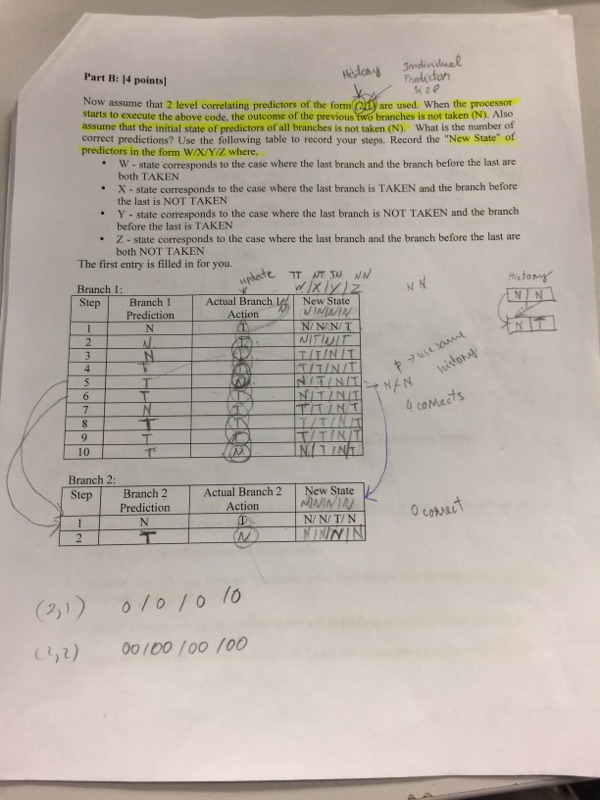 History
Individual
Predictor
Size
Part B: [4 points]
Now assume that 2 level correlating predictors of the form (2,1) are used. When the processor
starts to execute the above code, the outcome of the previous two branches is not taken (N). Also
assume that the initial state of predictors of all branches is not taken (N). What is the number of
correct predictions? Use the following table to record your steps. Record the "New State" of
predictors in the form W/X/Y/Z where,
• W - state corresponds to the case where the last branch and the branch before the last are
both TAKEN
• X - state corresponds to the case where the last branch is TAKEN and the branch before
the last is NOT TAKEN
• Y - state corresponds to the case where the last branch is NOT TAKEN and the branch
before the last is TAKEN
• Z - state corresponds to the case where the last branch and the branch before the last are
both NOT TAKEN
The first entry is filled in for you.
update TT NT TN NN
W/X/Y/Z
NN
History
N N
N T
Branch 1:
Step Branch 1 Prediction Actual Branch 1 Action New State
N/N/N/N
1 N T N/N/N/T
2 N T N/T/N/T
3 N T T/T/N/T
4 T T T/T/N/T
5 T N N/T/N/T
6 T T N/T/N/T
7 N T T/T/N/T
8 T T T/T/N/T
9 T T T/T/N/T
10 T N N/T/N/T
→ use same
history
4 corrects
Branch 2:
Step Branch 2 Prediction Actual Branch 2 Action New State
N/N/N/N
1 N T N/N/T/N
2 T N N/N/N/N
0 correct
(2,1) 0/0/0/0
(2,2) 00/00/00/00